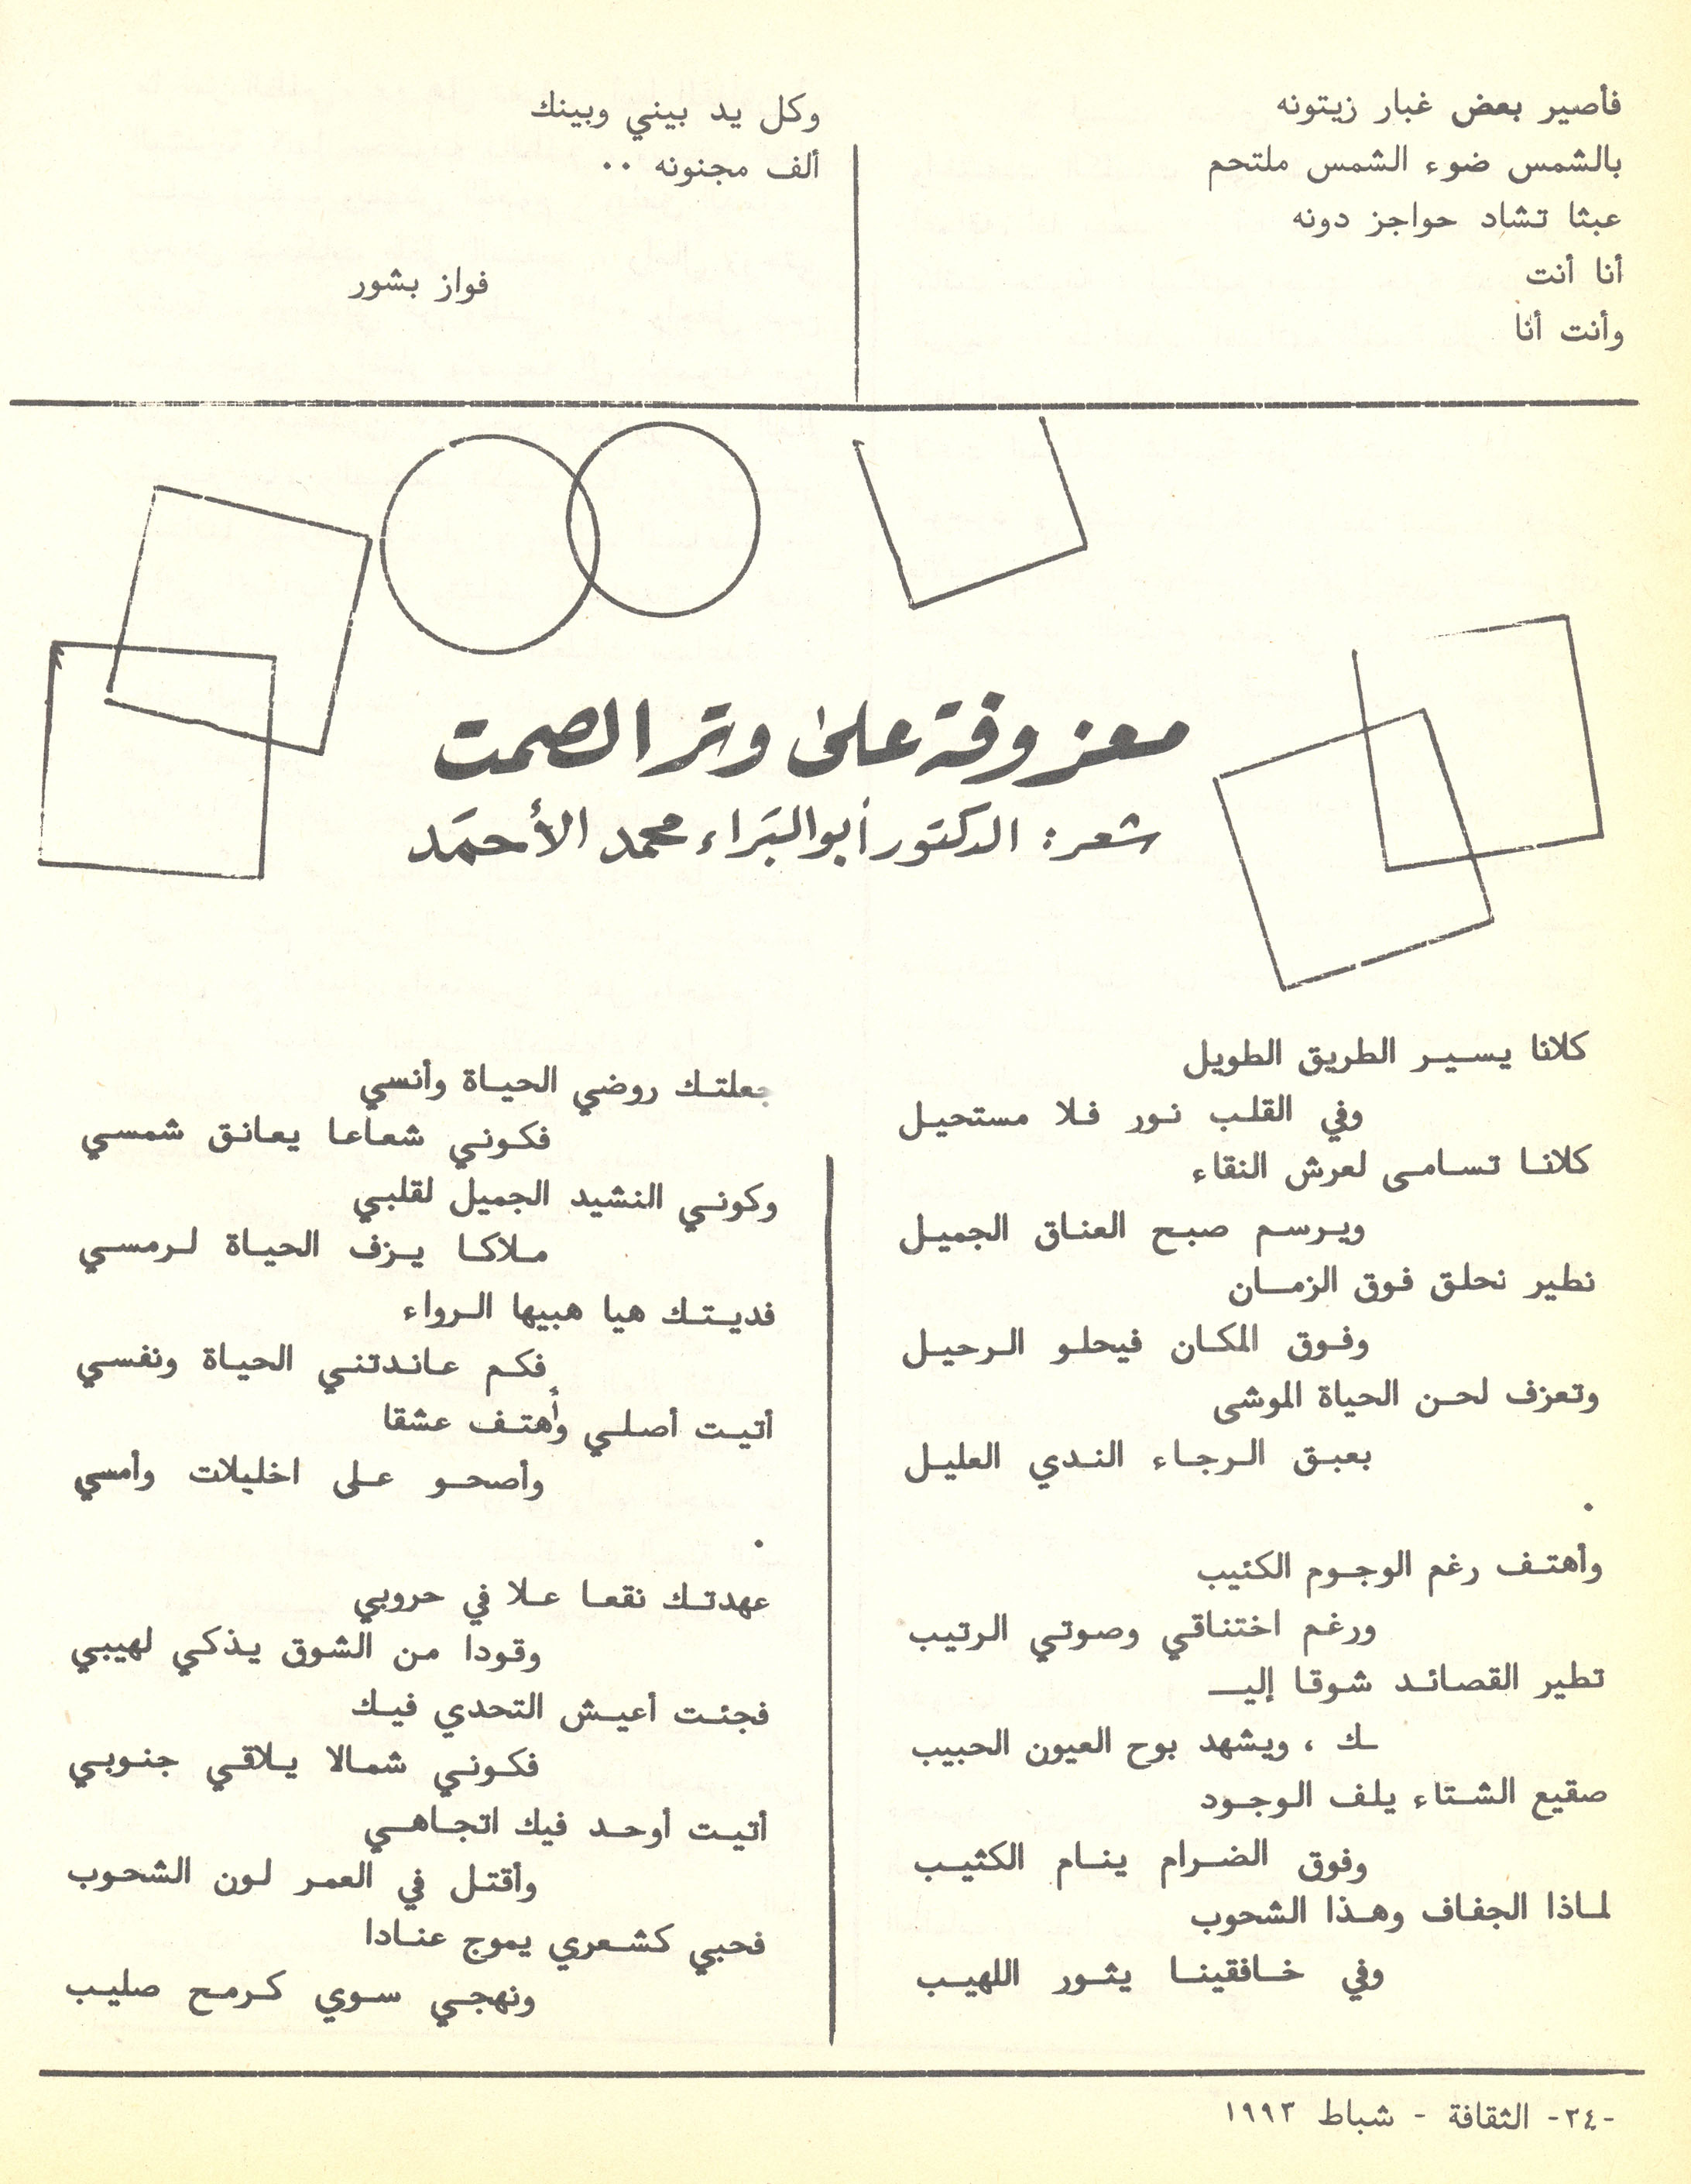 فأصير بعض غبار زيتونه
بالشمس ضوء الشمس ملتحم
عبثا تشاد حواجز دونه
أنا أنت
وأنت أنا
وكل يد بيني وبينك
ألف مجنونه ..
فواز بشور
معزوفة على وتر الصمت
شعر: الدكتور أبو البَراء محمد الأحمَد
كلانا يسير الطريق الطويل
وفي القلب نور فلا مستحيل
كلانا تسامى لعرش النقاء
ويرسم صبح العناق الجميل
نطير نحلق فوق الزمان
وفوق المكان فيحلو الرحيل
وتعزف لحن الحياة الموشى
بعبق الرجاء الندي العليل
.
وأهتف رغم الوجوم الكئيب
ورغم اختناقي وصوتي الرتيب
تطير القصائد شوقا إليـ
ـك ، ويشهد بوح العيون الحبيب
صقيع الشتاء يلف الوجود
وفوق الضرام ينام الكثيب
لماذا الجفاف وهذا الشحوب
وفي خافقينا يثور اللهيب
جعلتك روضي الحياة وأنسي
فكوني شعاعا يعانق شمسي
وكوني النشيد الجميل لقلبي
ملاكا يزف الحياة لرمسي
فديتك هيا هبيها الرواء
فكم عاندتني الحياة ونفسي
أتيت أصلي وأُهتف عشقا
وأصحو على اخليلات وأمسي
.
عهدتك نقعا علا في حروبي
وقودا من الشوق يذكي لهيبي
فجئت أعيش التحدي فيك
فكوني شمالا يلاقي جنوبي
أتيت أوحد فيك اتجاهي
وأقتل في العمر لون الشحوب
فحبي كشعري يموج عنادا
ونهجي سوي كرمح صليب
-٣٤- الثقافة - شباط ١٩٩٣